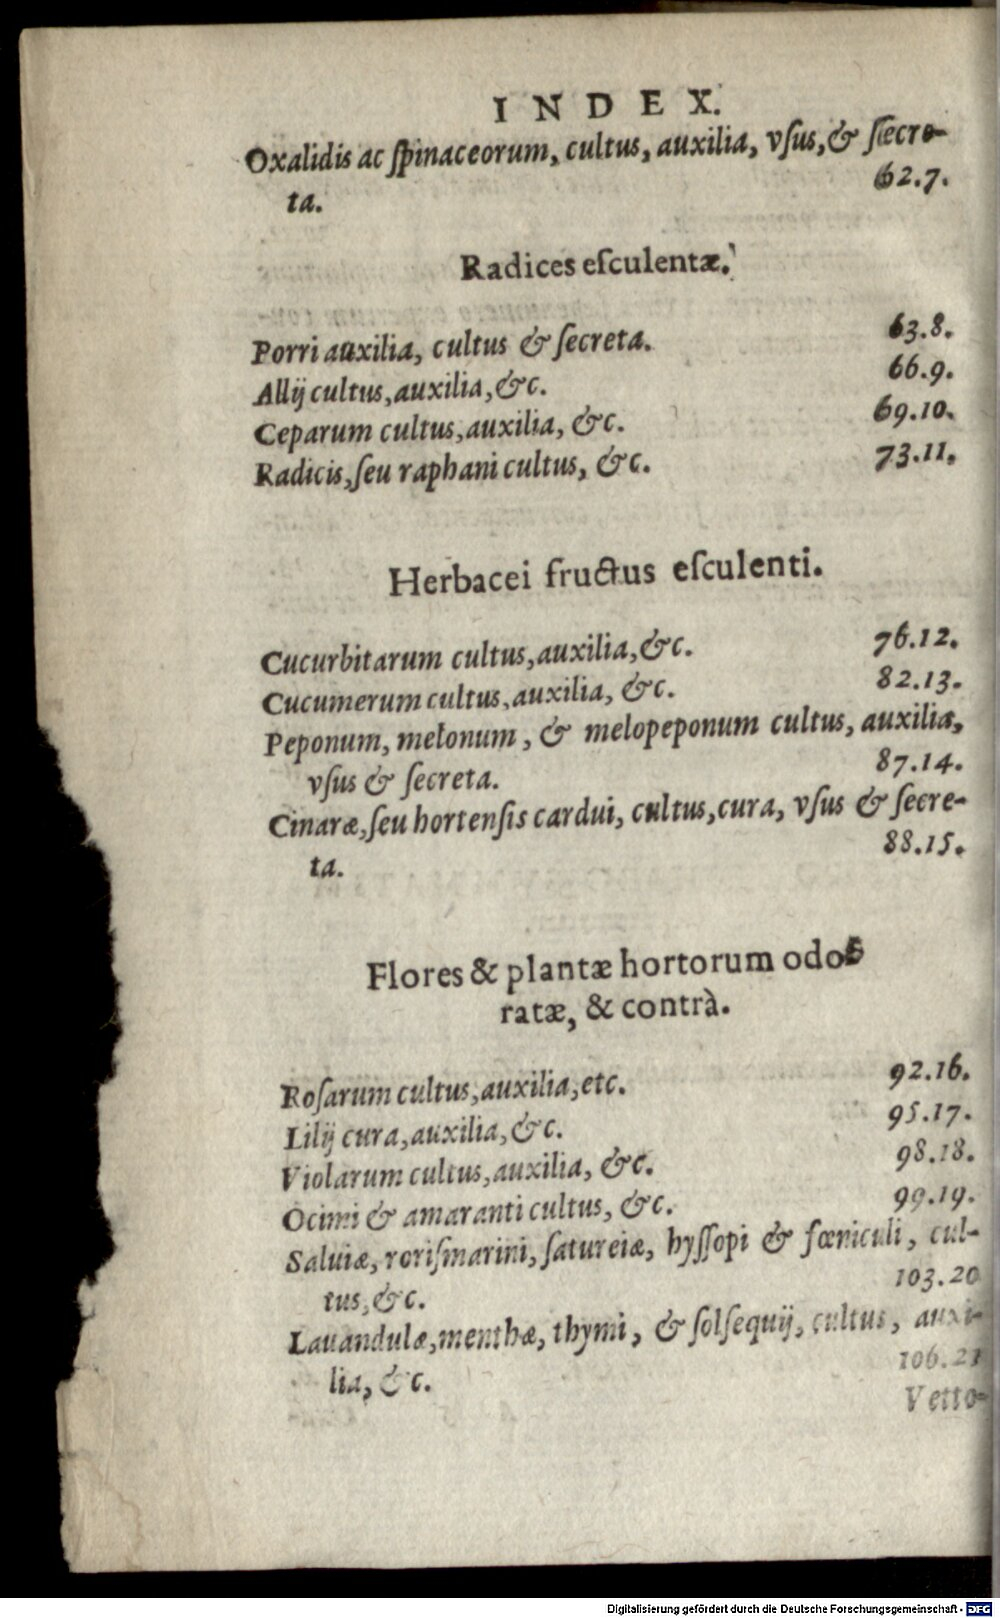 INDEX.
Oxalidis ac ſpinaceorum, cultus, auxilia, vſus, & ſecre-
ta. 62.7.
Radices eſculentæ.
Porri auxilia, cultus & ſecreta. 63.8.
Allij cultus, auxilia, &c. 66.9.
Ceparum cultus, auxilia, &c. 69.10.
Radicis, ſeu raphani cultus, &c. 73.11.
Herbacei fructus eſculenti.
Cucurbitarum cultus, auxilia, &c. 76.12.
Cucumerum cultus, auxilia, &c. 82.13.
Peponum, melonum, & melopeponum cultus, auxilia,
vſus & ſecreta. 87.14.
Cinaræ, ſeu hortenſis cardui, cultus, cura, vſus & ſecre-
ta. 88.15.
Flores & plantæ hortorum odo-
ratæ, & contrà.
Roſarum cultus, auxilia, etc. 92.16.
Lilij cura, auxilia, &c. 95.17.
Violarum cultus, auxilia, &c. 98.18.
Ocimi & amaranti cultus, &c. 99.19.
Saluiæ, roriſmarini, ſatureiæ, hyſſopi & fœniculi, cul-
tus, &c. 103.20
Lauandulæ, menthæ, thymi, & ſolſequij, cultus, auxi-
lia, &c. 106.21
Vetto-
Digitalisierung gefördert durch die Deutsche Forschungsgemeinschaft - DFG